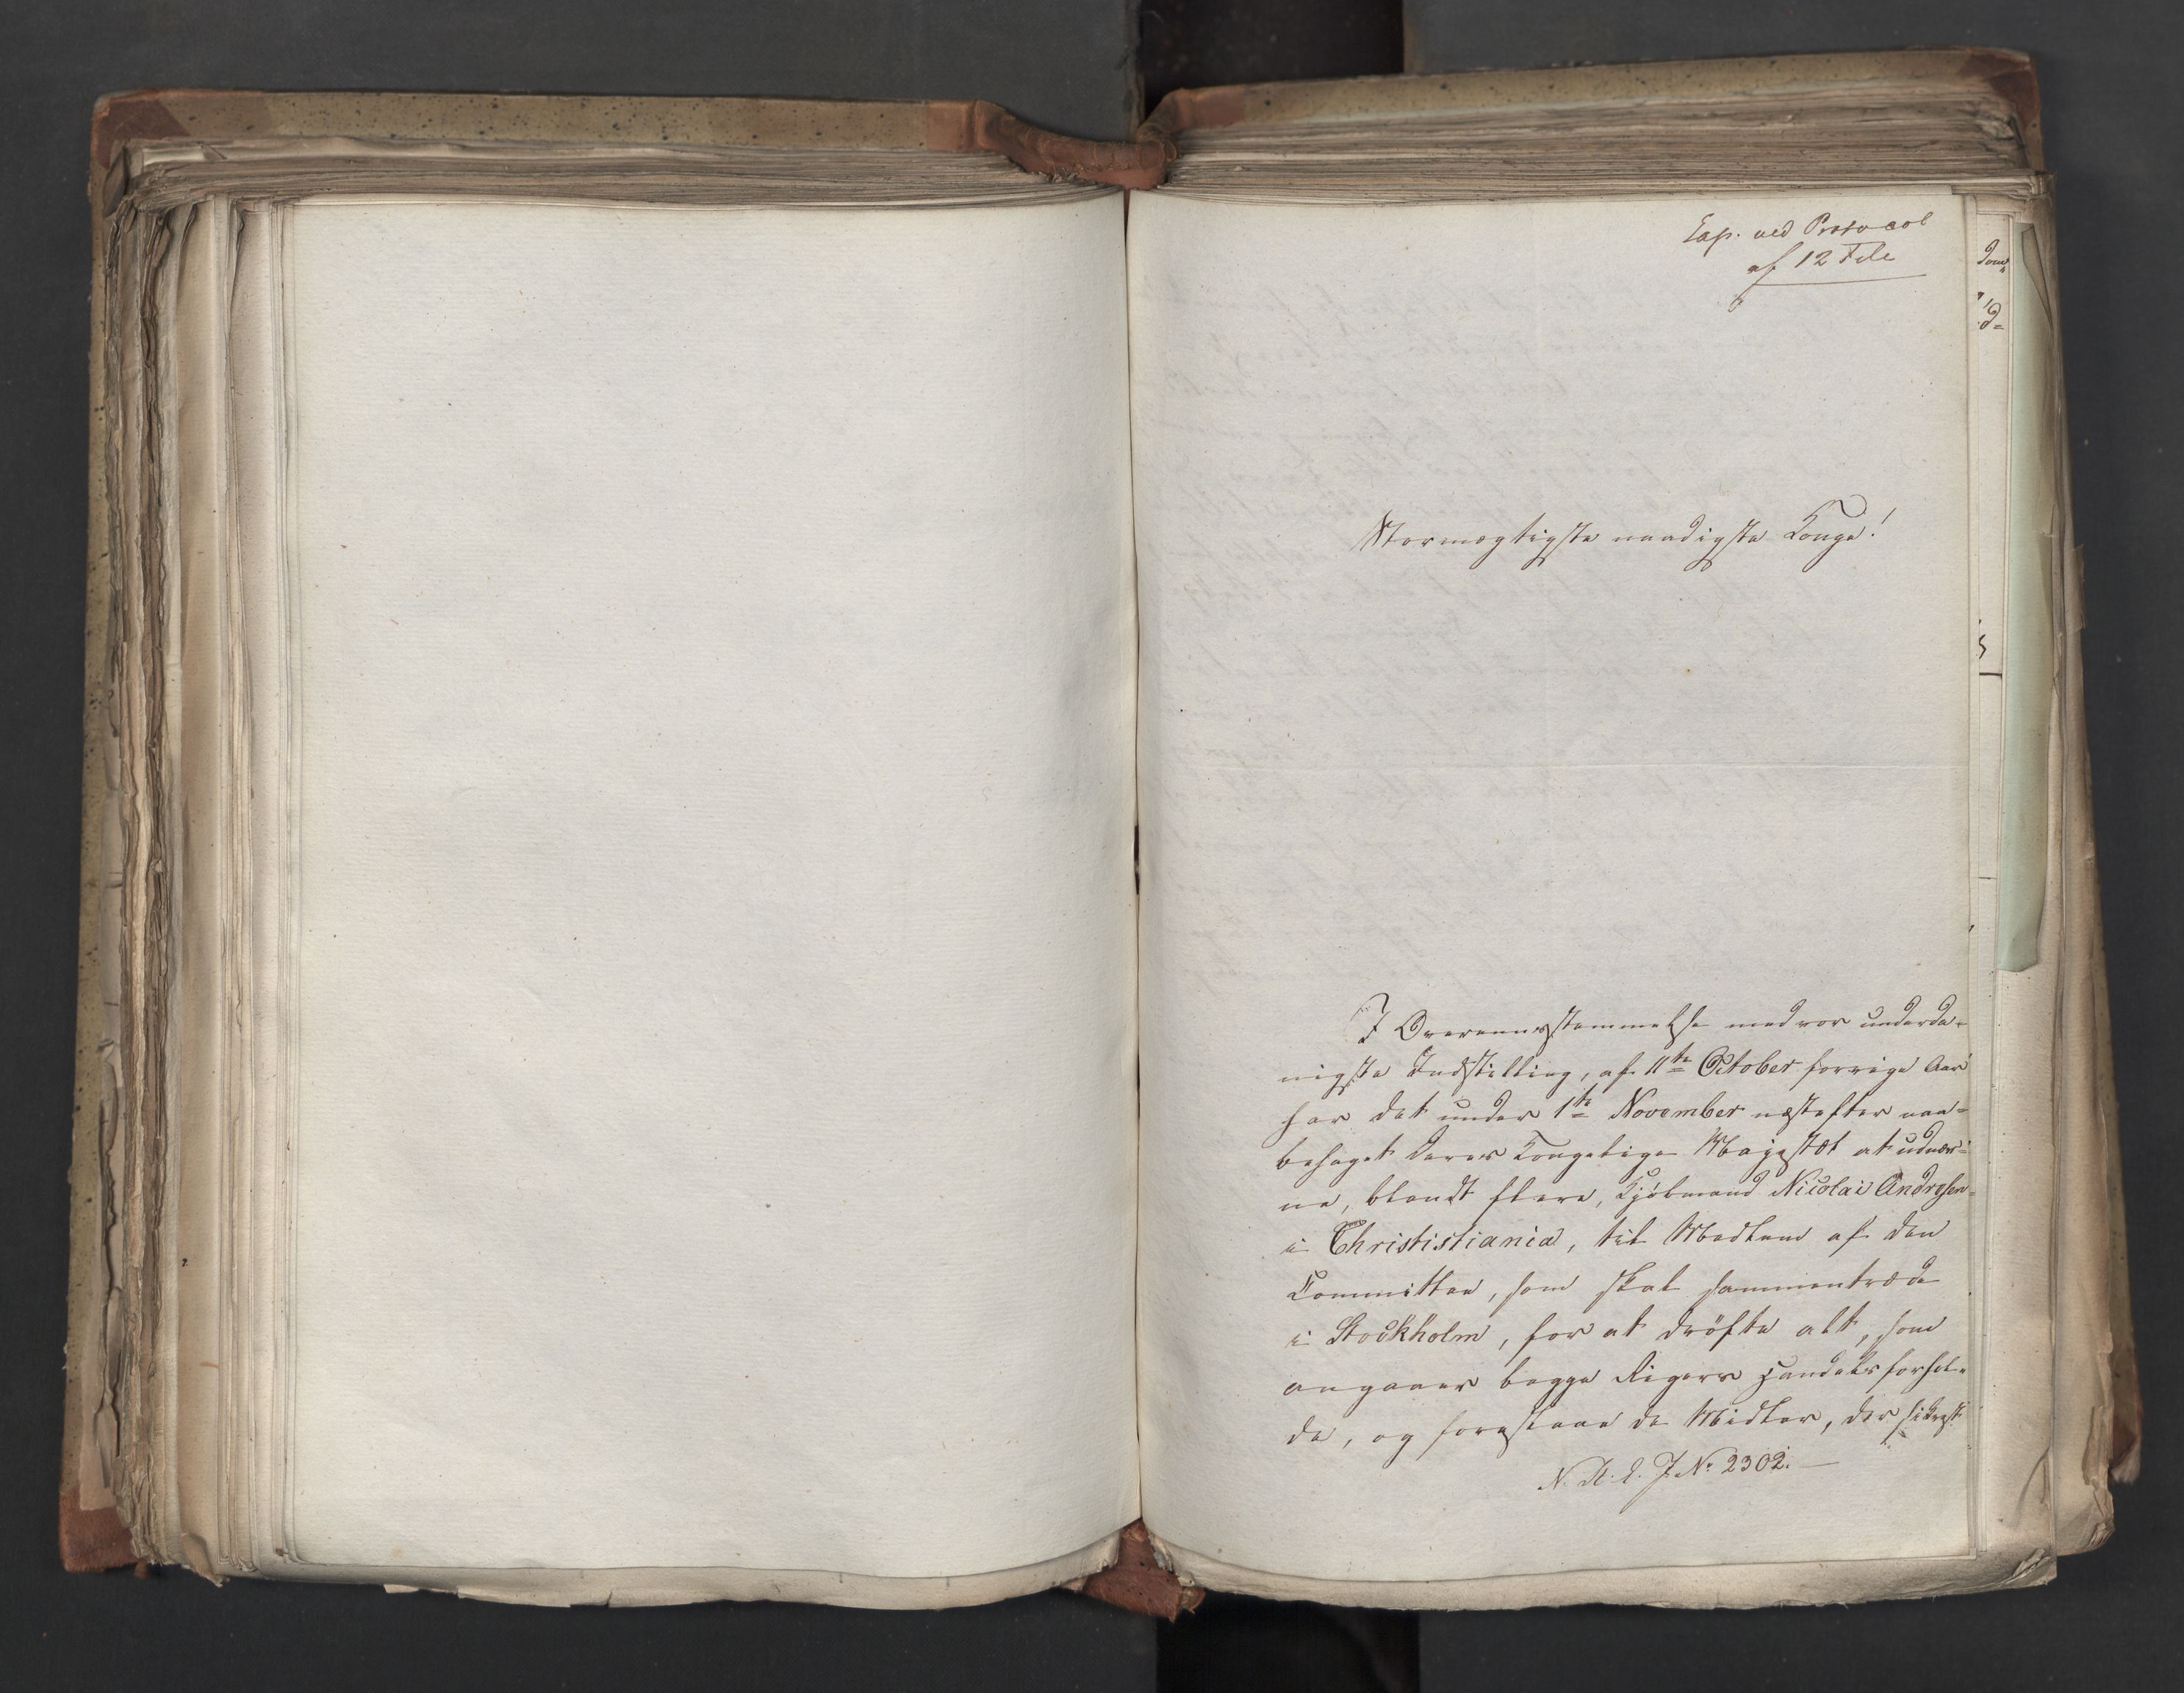 Exp. ved Protocol
af 12 Febr
Stormægtigste naadigste Konge!
I Overeensstemmelse med vor underda-
nigste Indstilling, af 11te October forrige Aar
har det under 1te November næstefter naa-
behaget Deres Kongelige Majestæt at udnæv-
ne, blandt flere, Kjöbmand Nicolai Andresen
i Christistiania, til Medlem af den
Committee, som skal sammentræde
i Stockholm, for at dröfte alt, som
angaaer begge Rigers Handelsforhol-
de, og foreslaae de Midler, der sikkrest
N. R. S. J. No 2302.